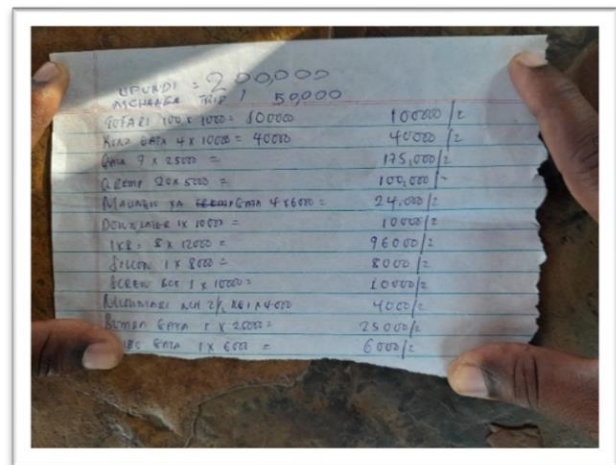 UFUNDI = 200,000
MCHANGA TRIP 1 50,000
TOFARI 100 x 1000 = 100000 100000/=
KONA GATA 4 x 10000 = 40000 40000/=
GATA 7 x 25000 = 175,000/=
20 x 5000 = 100,000/=
MAUNGIO YA GATA 4 x 6000 = 24,000/=
1 x 10000 = 10000/=
1x8 = 8 x 12000 = 96000/=
SILCON 1 x 8000 = 8000/=
SCREW BOX 1 x 10000 = 10000/=
MISUMARI NCH 2 1/2 KG 1 x 4000 4000/=
GATA 1 x 25000 = 25000/=
GATA 1 x 6000 = 6000/=